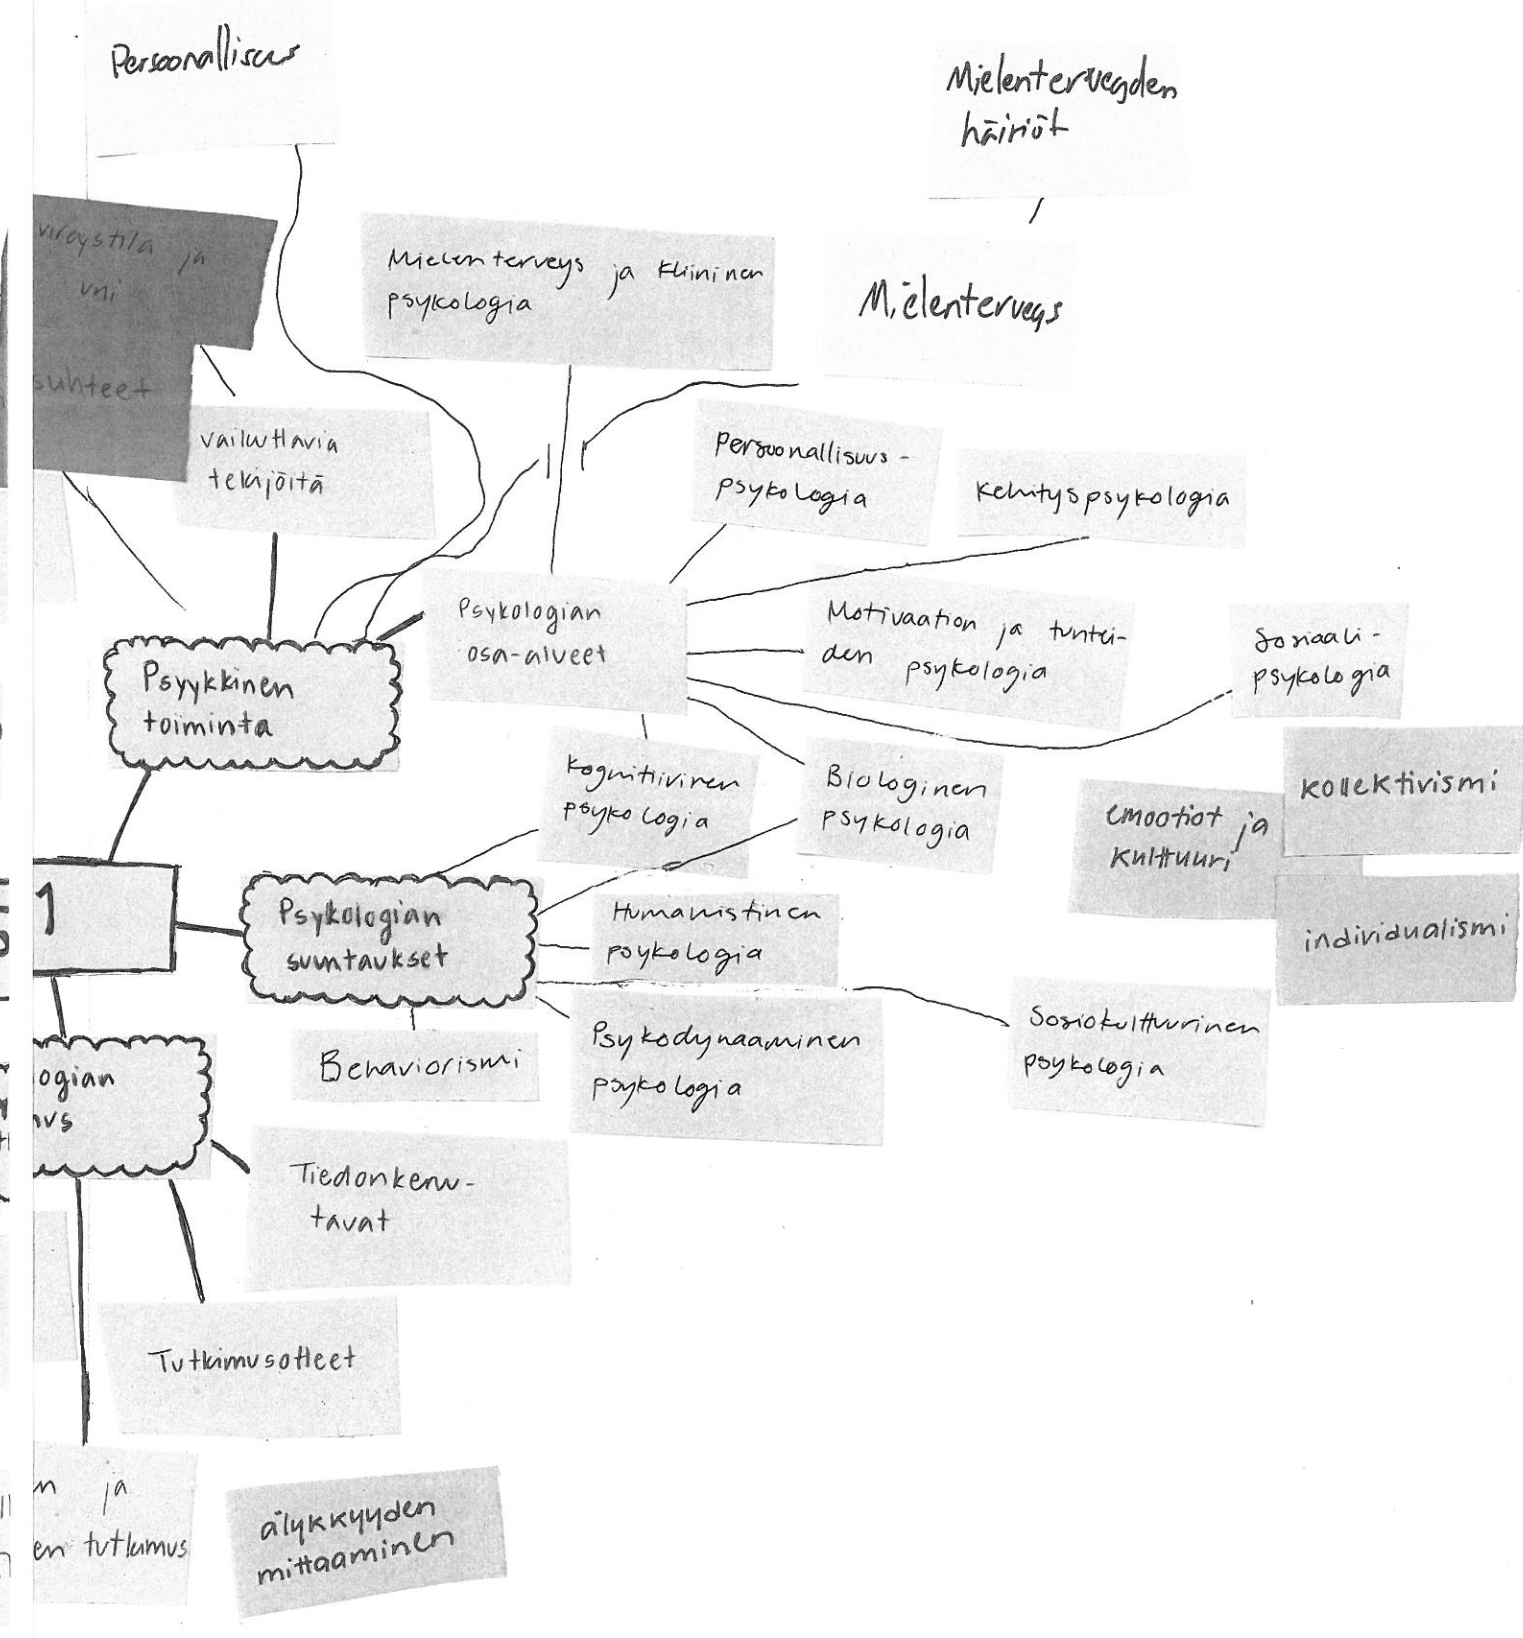 Persoonallisuus
Mielenterveyden
häiriöt
vireystila ja
uni
suhteet
Mielenterveys ja kliininen
psykologia
Mielenterveys
vaikuttavia
tekijöitä
Persoonallisuus-
psykologia
Kehityspsykologia
Psykologian
osa-alueet
Motivaation ja tuntei-
den psykologia
Sosiaali-
psykologia
Psyykkinen
toiminta
Kognitiivinen
psykologia
Biologinen
psykologia
emootiot ja
kulttuuri
kollektivismi
individualismi
1
Psykologian
suuntaukset
Humanistinen
psykologia
Behaviorismi
Psykodynaaminen
psykologia
Sosiokulttuurinen
psykologia
ogian
us
Tiedonkeruu-
tavat
Tutkimusotteet
n ja
en tutkimus
älykkyyden
mittaaminen